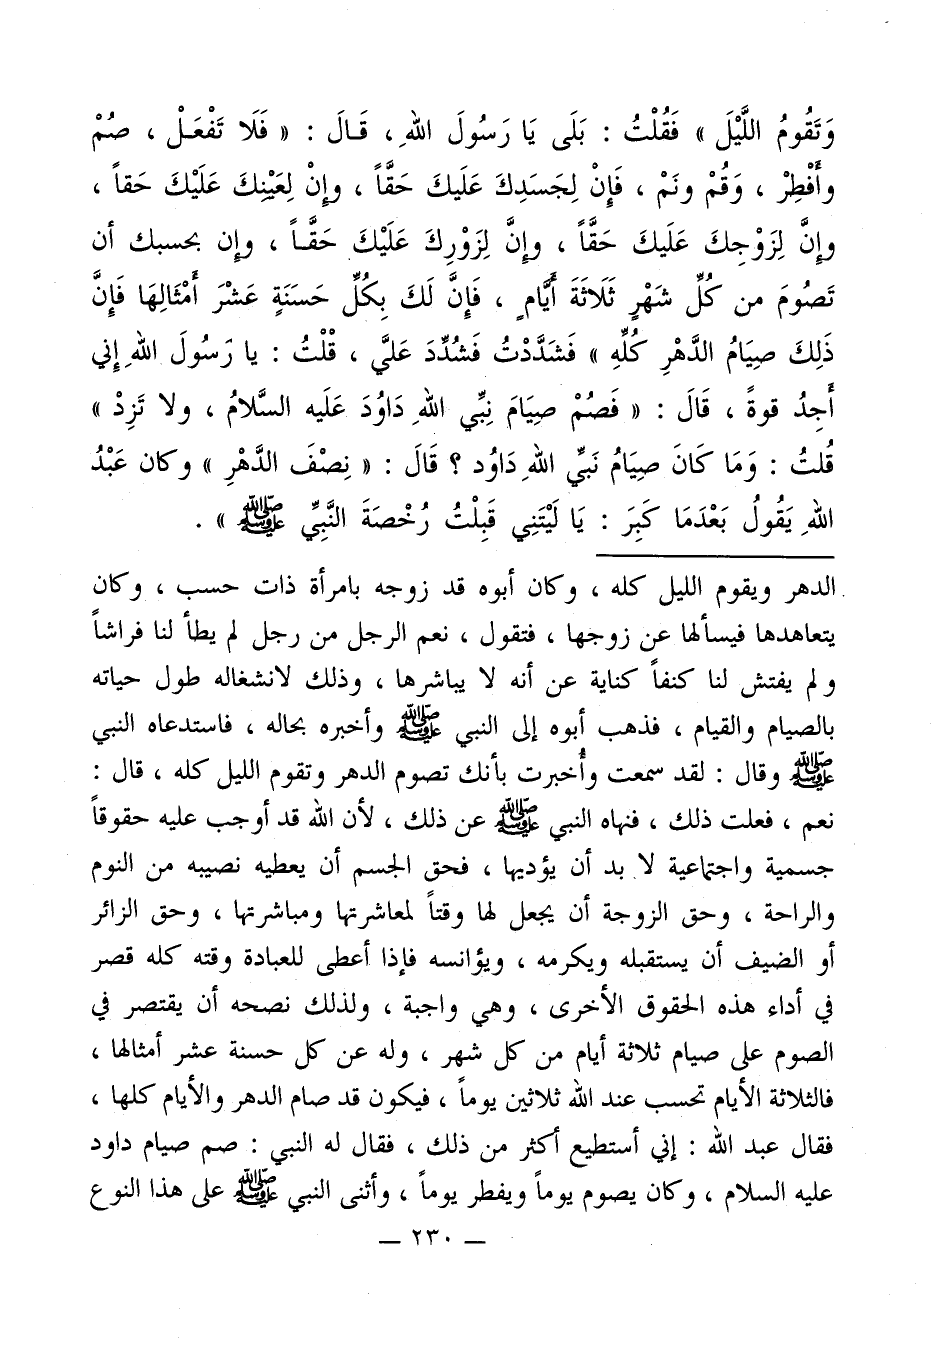 وَتَقُومُ اللَّيْلَ » فَقُلْتُ : بَلَى يَا رَسُولَ اللهِ ، قَالَ : « فَلَا تَفْعَلْ ، صُمْ
وأَفْطِرْ ، وَقُمْ ونَمْ ، فَإِنْ لِجَسَدِكَ عَلَيكَ حَقَّاً ، وإِنْ لِعَيْنِكَ عَلَيْكَ حَقاً ،
وإِنَّ لِزَوْجِكَ عَلَيكَ حَقَّاً ، وإِنَّ لِزَوْرِكَ عَلَيْكَ حَقَّاً ، وإن بحسبك أن
تَصُومَ من كُلِّ شَهْرٍ ثَلَاثَةَ أَيَّامٍ ، فَإِنَّ لَكَ بِكُلِّ حَسَنَةٍ عَشْرَ أَمْثَالِهَا فَإِنَّ
ذَلِكَ صِيَامُ الدَّهْرِ كُلِّهِ » فَشَدَّدْتُ فَشُدِّدَ عَلَيَّ ، قُلْتُ : يا رَسُولَ اللهِ إِني
أَجِدُ قوةً ، قَالَ : « فَصُمْ صِيَامَ نبِّي اللهِ دَاوُدَ عَلَيه السَّلامُ ، ولا تَزِدْ »
قُلتُ : وَمَا كَانَ صِيَامُ نَبِّي اللهِ دَاوُد ؟ قَالَ : « نِصْفَ الدَّهْرِ » وكان عَبْدُ
اللهِ يَقُولُ بَعْدَمَا كَبِرَ : يَا لَيْتَنِي قَبِلْتُ رُخْصَةَ النَّبِيِّ ﷺ » .
الدهر ويقوم الليل كله ، وكان أبوه قد زوجه بامرأة ذات حسب ، وكان
يتعاهدها فيسألها عن زوجها ، فتقول ، نعم الرجل من رجل لم يطأ لنا فراشاً
ولم يفتش لنا كنفاً كناية عن أنه لا يباشرها ، وذلك لانشغاله طول حياته
بالصيام والقيام ، فذهب أبوه إلى النبي ﷺ وأخبره بحاله ، فاستدعاه النبي
ﷺ وقال : لقد سمعت وأُخبرت بأنك تصوم الدهر وتقوم الليل كله ، قال :
نعم ، فعلت ذلك ، فنهاه النبي ﷺ عن ذلك ، لأن الله قد أوجب عليه حقوقاً
جسمية واجتماعية لا بد أن يؤديها ، فحق الجسم أن يعطيه نصيبه من النوم
والراحة ، وحق الزوجة أن يجعل لها وقتاً لمعاشرتها ومباشرتها ، وحق الزائر
أو الضيف أن يستقبله ويكرمه ، ويؤانسه فإذا أعطى للعبادة وقته كله قصر
في أداء هذه الحقوق الأخرى ، وهي واجبة ، ولذلك نصحه أن يقتصر في
الصوم على صيام ثلاثة أيام من كل شهر ، وله عن كل حسنة عشر أمثالها ،
فالثلاثة الأيام تحسب عند الله ثلاثين يوماً ، فيكون قد صام الدهر والأيام كلها ،
فقال عبد الله : إني أستطيع أكثر من ذلك ، فقال له النبي : صم صيام داود
عليه السلام ، وكان يصوم يوماً ويفطر يوماً ، وأثنى النبي ﷺ على هذا النوع
— ٢٣٠ —